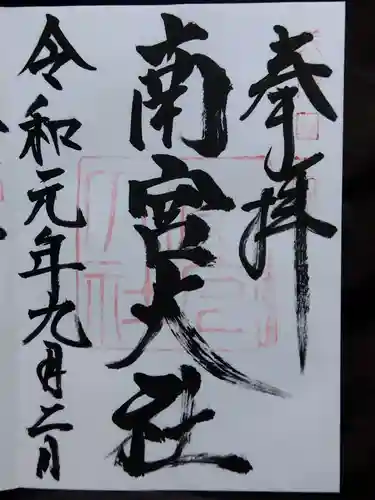 奉拝
南宮大社
令和元年九月二日